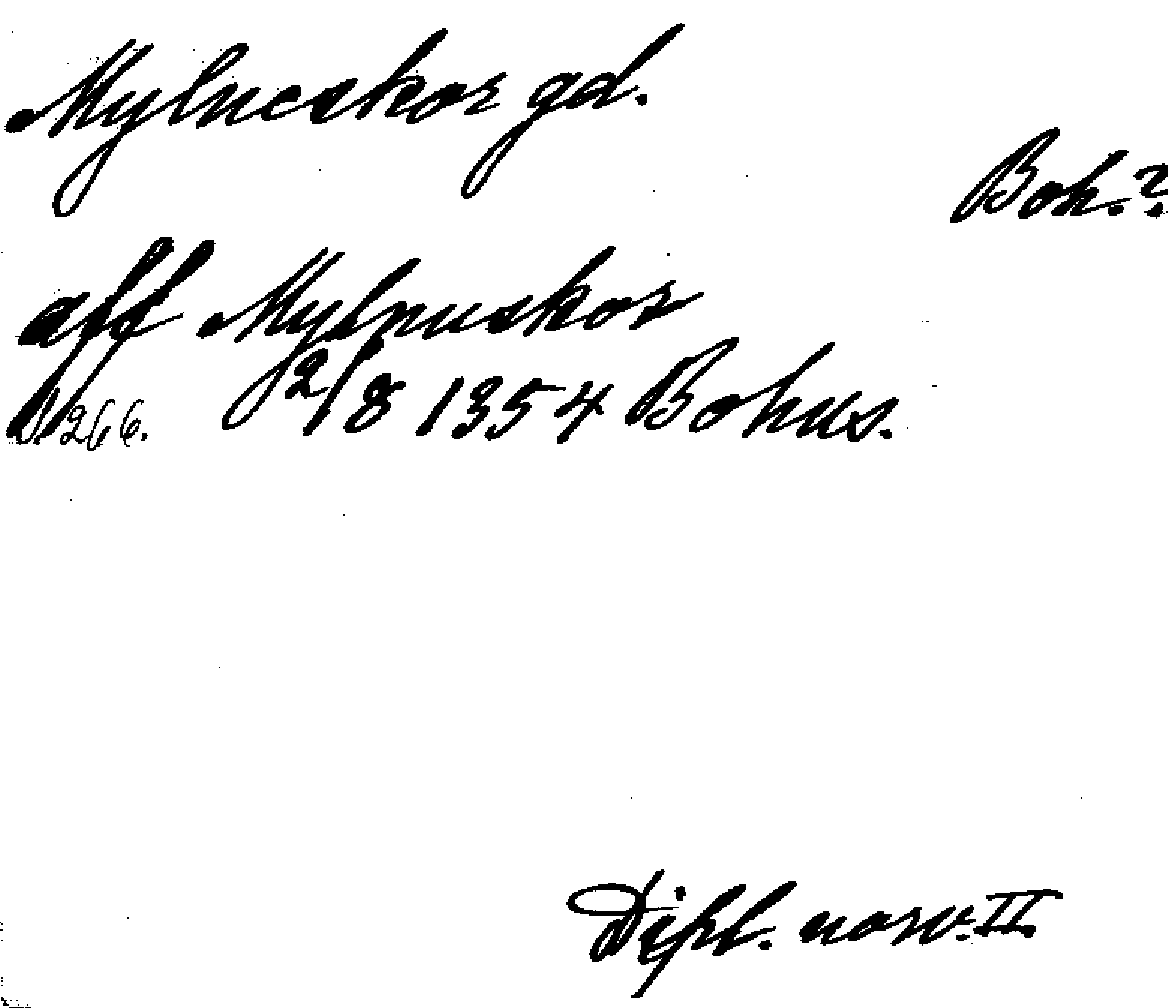 Mylneskor gd.
Boh.?
aff Mylnuskor
2/8 1354 Bohus.
S. 266.
Dipl. norv. II.